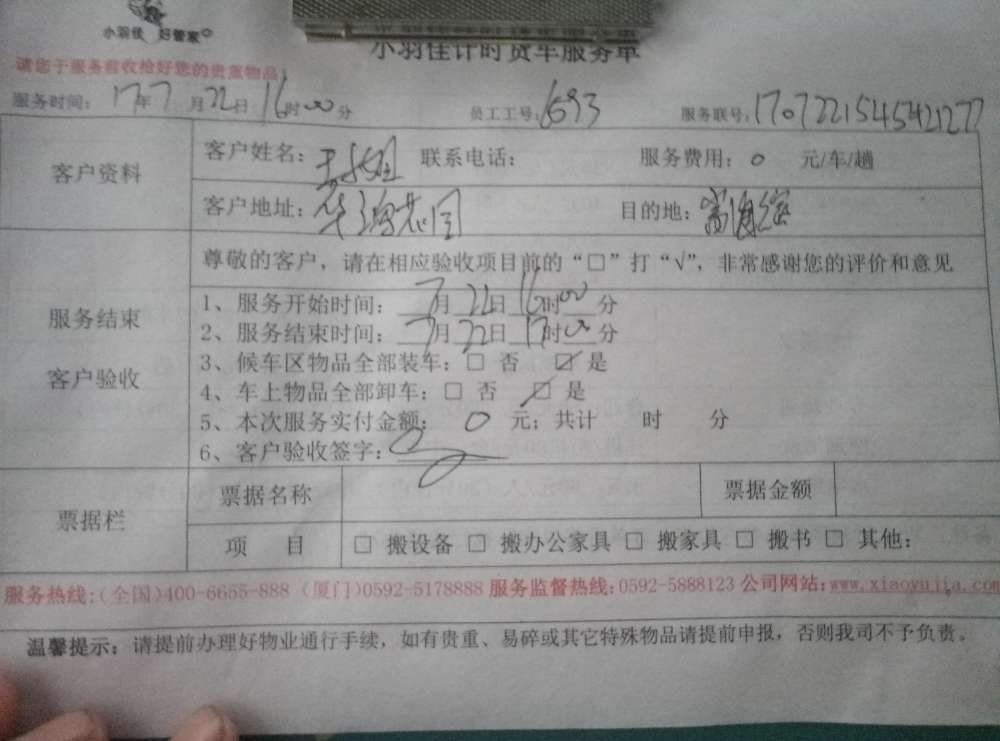 小羽佳 好管家
小羽佳计时货车服务单
请您于服务前收给好您的贵重物品!
服务时间: 17年7月22日16时00分 员工工号: 1693 服务联号: 17072215454542127
客户资料
客户姓名: 联系电话: 服务费用: 0 元/车/趟
客户地址: 目的地:
服务结束
客户验收
尊敬的客户，请在相应验收项目前的“□”打“√”，非常感谢您的评价和意见
1、服务开始时间: 7月22日16时00分
2、服务结束时间: 7月22日17时00分
3、候车区物品全部装车: □ 否 ☑ 是
4、车上物品全部卸车: □ 否 ☑ 是
5、本次服务实付金额: 0 元; 共计 时 分
6、客户验收签字:
票据栏
票据名称 票据金额
项 目 □ 搬设备 □ 搬办公家具 □ 搬家具 □ 搬书 □ 其他:
服务热线:(全国)400-6655-888 (厦门)0592-5178888 服务监督热线:0592-5888123 公司网站:www.xiaoyujia.com
温馨提示: 请提前办理好物业通行手续，如有贵重、易碎或其它特殊物品请提前申报，否则我司不予负责。